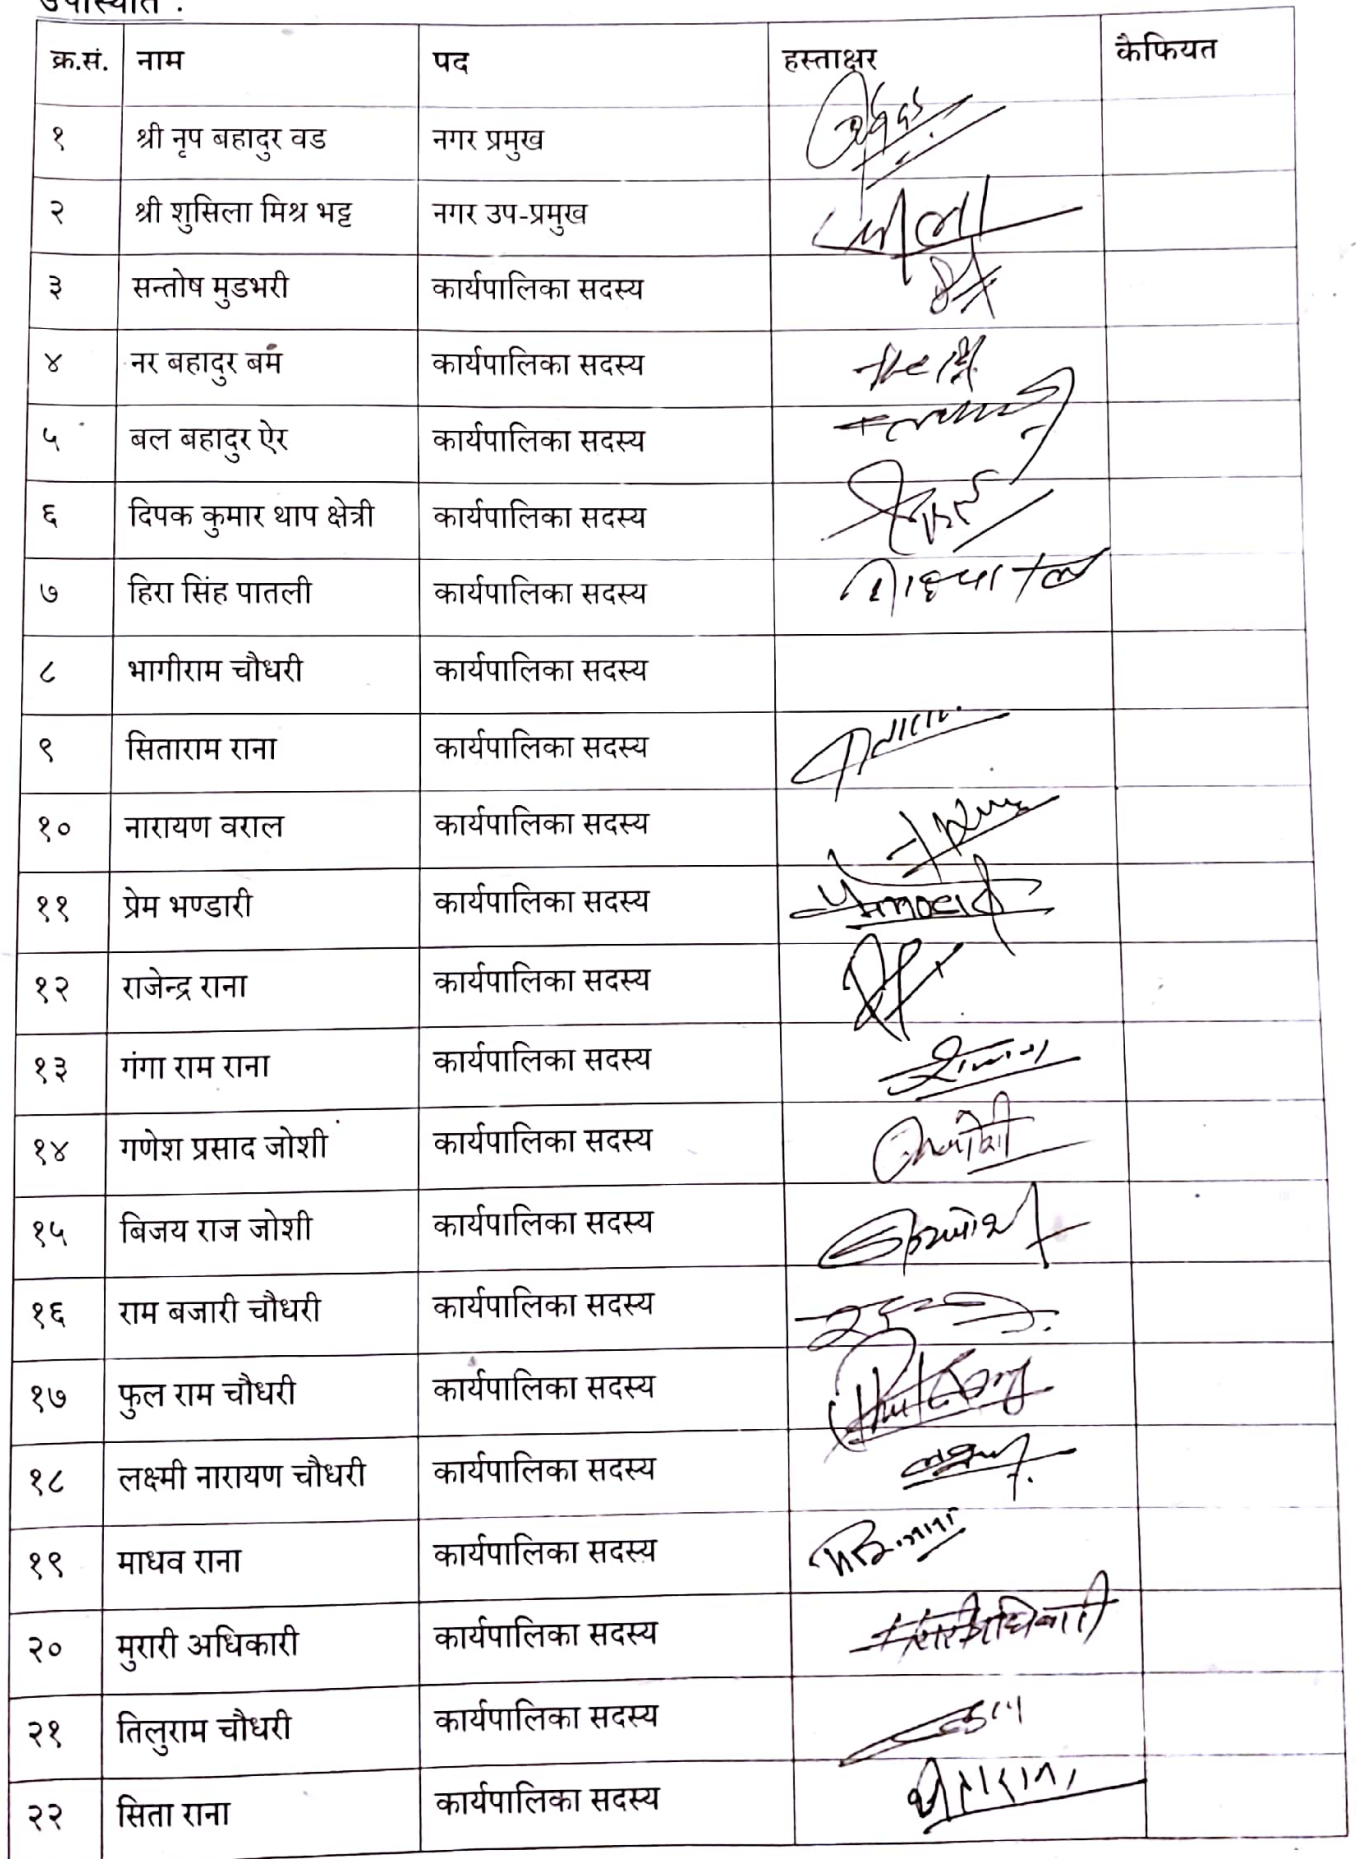 उपस्थिति :
क्र.सं. नाम पद हस्ताक्षर कैफियत
१ श्री नृप बहादुर वड नगर प्रमुख
२ श्री शुसिला मिश्र भट्ट नगर उप-प्रमुख
३ सन्तोष मुडभरी कार्यपालिका सदस्य
४ नर बहादुर बम कार्यपालिका सदस्य
५ बल बहादुर ऐर कार्यपालिका सदस्य
६ दिपक कुमार थाप क्षेत्री कार्यपालिका सदस्य
७ हिरा सिंह पातली कार्यपालिका सदस्य
८ भागीराम चौधरी कार्यपालिका सदस्य
९ सिताराम राना कार्यपालिका सदस्य
१० नारायण वराल कार्यपालिका सदस्य
११ प्रेम भण्डारी कार्यपालिका सदस्य
१२ राजेन्द्र राना कार्यपालिका सदस्य
१३ गंगा राम राना कार्यपालिका सदस्य
१४ गणेश प्रसाद जोशी कार्यपालिका सदस्य
१५ बिजय राज जोशी कार्यपालिका सदस्य
१६ राम बजारी चौधरी कार्यपालिका सदस्य
१७ फुल राम चौधरी कार्यपालिका सदस्य
१८ लक्ष्मी नारायण चौधरी कार्यपालिका सदस्य
१९ माधव राना कार्यपालिका सदस्य
२० मुरारी अधिकारी कार्यपालिका सदस्य
२१ तिलुराम चौधरी कार्यपालिका सदस्य
२२ सिता राना कार्यपालिका सदस्य